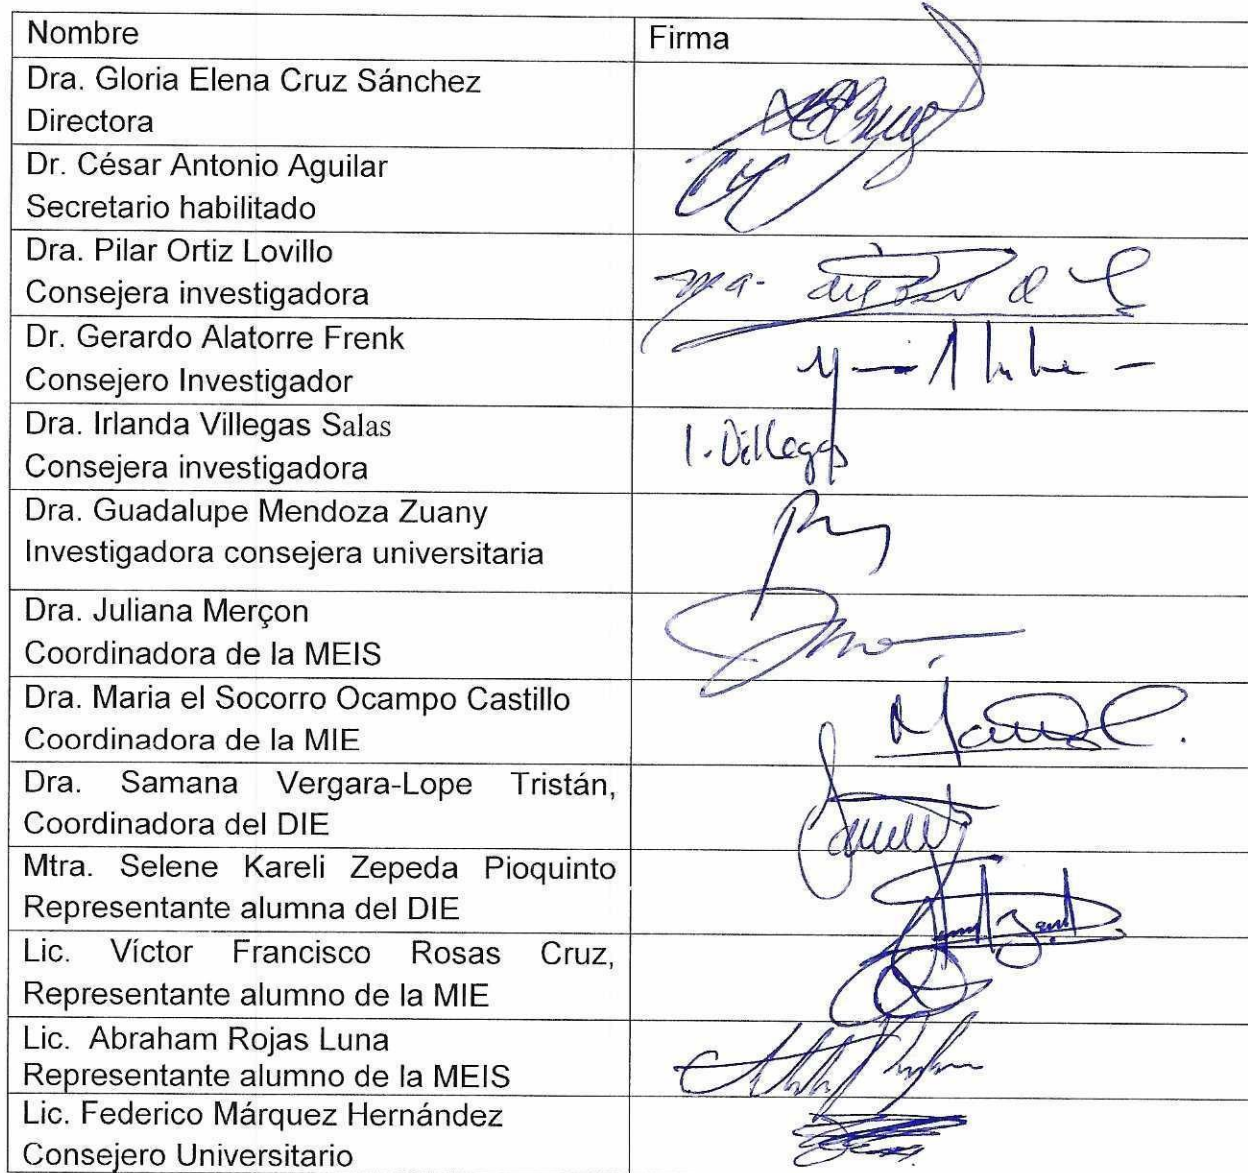 Nombre
Firma
Dra. Gloria Elena Cruz Sánchez
Directora
Dr. César Antonio Aguilar
Secretario habilitado
Dra. Pilar Ortiz Lovillo
Consejera investigadora
Dr. Gerardo Alatorre Frenk
Consejero Investigador
Dra. Irlanda Villegas Salas
Consejera investigadora
I. Villegas
Dra. Guadalupe Mendoza Zuany
Investigadora consejera universitaria
Dra. Juliana Merçon
Coordinadora de la MEIS
Dra. Maria el Socorro Ocampo Castillo
Coordinadora de la MIE
Dra. Samana Vergara-Lope Tristán,
Coordinadora del DIE
Mtra. Selene Kareli Zepeda Pioquinto
Representante alumna del DIE
Lic. Víctor Francisco Rosas Cruz,
Representante alumno de la MIE
Lic. Abraham Rojas Luna
Representante alumno de la MEIS
Lic. Federico Márquez Hernández
Consejero Universitario